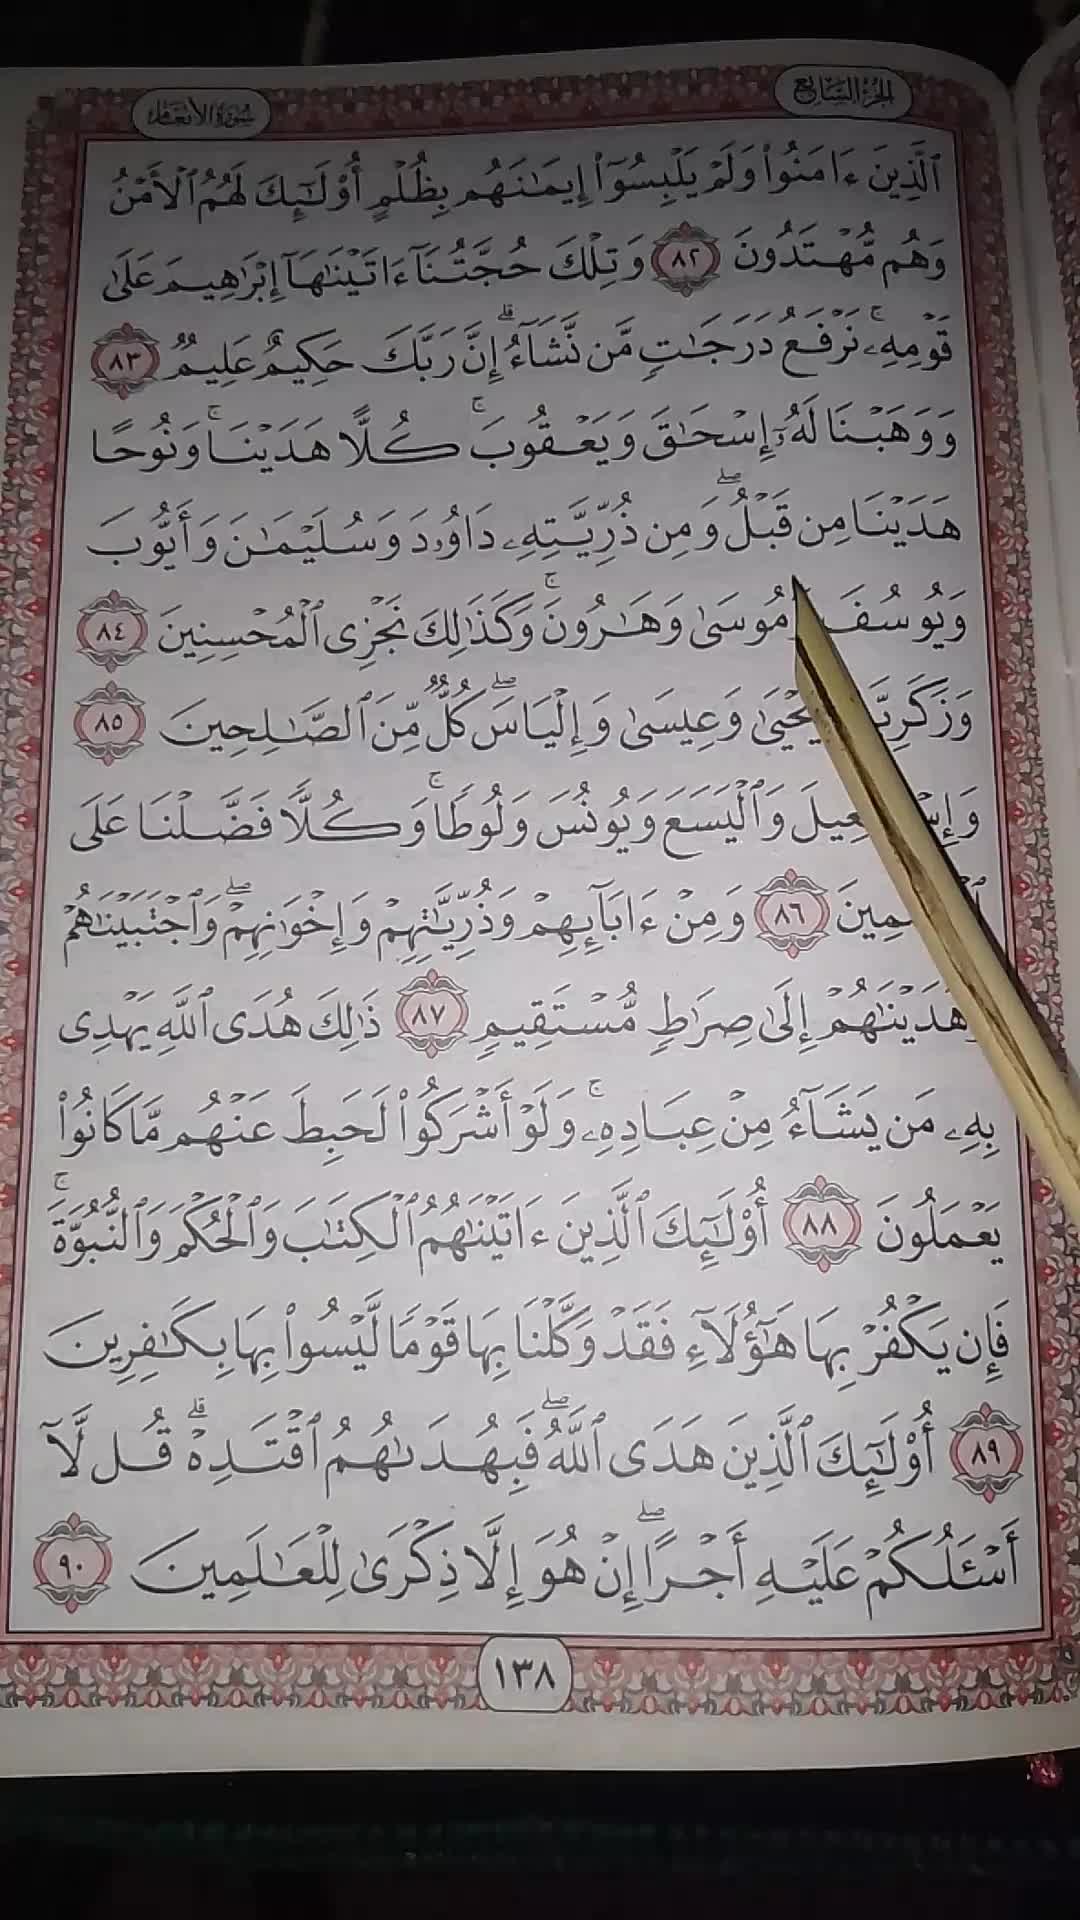 الجزء السابع
سورة الأنعام
ٱلَّذِينَ ءَامَنُوا۟ وَلَمْ يَلْبِسُوٓا۟ إِيمَٰنَهُم بِظُلْمٍ أُو۟لَٰٓئِكَ لَهُمُ ٱلْأَمْنُ
وَهُم مُّهْتَدُونَ ٨٢ وَتِلْكَ حُجَّتُنَآ ءَاتَيْنَٰهَآ إِبْرَٰهِيمَ عَلَىٰ
قَوْمِهِۦ ۚ نَرْفَعُ دَرَجَٰتٍ مَّن نَّشَآءُ ۗ إِنَّ رَبَّكَ حَكِيمٌ عَلِيمٌ ٨٣
وَوَهَبْنَا لَهُۥٓ إِسْحَٰقَ وَيَعْقُوبَ ۚ كُلًّا هَدَيْنَا ۚ وَنُوحًا
هَدَيْنَا مِن قَبْلُ ۖ وَمِن ذُرِّيَّتِهِۦ دَاوُۥدَ وَسُلَيْمَٰنَ وَأَيُّوبَ
وَيُوسُفَ مُوسَىٰ وَهَٰرُونَ ۚ وَكَذَٰلِكَ نَجْزِى ٱلْمُحْسِنِينَ ٨٤
يَحْيَىٰ وَعِيسَىٰ وَإِلْيَاسَ ۖ كُلٌّ مِّنَ ٱلصَّٰلِحِينَ ٨٥
وَٱلْيَسَعَ وَيُونُسَ وَلُوطًا ۚ وَكُلًّا فَضَّلْنَا عَلَى
٨٦ وَمِنْ ءَابَآئِهِمْ وَذُرِّيَّٰتِهِمْ وَإِخْوَٰنِهِمْ ۖ وَٱجْتَبَيْنَٰهُمْ
وَهَدَيْنَٰهُمْ إِلَىٰ صِرَٰطٍ مُّسْتَقِيمٍ ٨٧ ذَٰلِكَ هُدَى ٱللَّهِ يَهْدِى
بِهِۦ مَن يَشَآءُ مِنْ عِبَادِهِۦ ۚ وَلَوْ أَشْرَكُوا۟ لَحَبِطَ عَنْهُم مَّا كَانُوا۟
يَعْمَلُونَ ٨٨ أُو۟لَٰٓئِكَ ٱلَّذِينَ ءَاتَيْنَٰهُمُ ٱلْكِتَٰبَ وَٱلْحُكْمَ وَٱلنُّبُوَّةَ ۚ
فَإِن يَكْفُرْ بِهَا هَٰٓؤُلَآءِ فَقَدْ وَكَّلْنَا بِهَا قَوْمًا لَّيْسُوا۟ بِهَا بِكَٰفِرِينَ
٨٩ أُو۟لَٰٓئِكَ ٱلَّذِينَ هَدَى ٱللَّهُ ۖ فَبِهُدَىٰهُمُ ٱقْتَدِهْ ۗ قُل لَّآ
أَسْـَٔلُكُمْ عَلَيْهِ أَجْرًا ۖ إِنْ هُوَ إِلَّا ذِكْرَىٰ لِلْعَٰلَمِينَ ٩٠
١٣٨